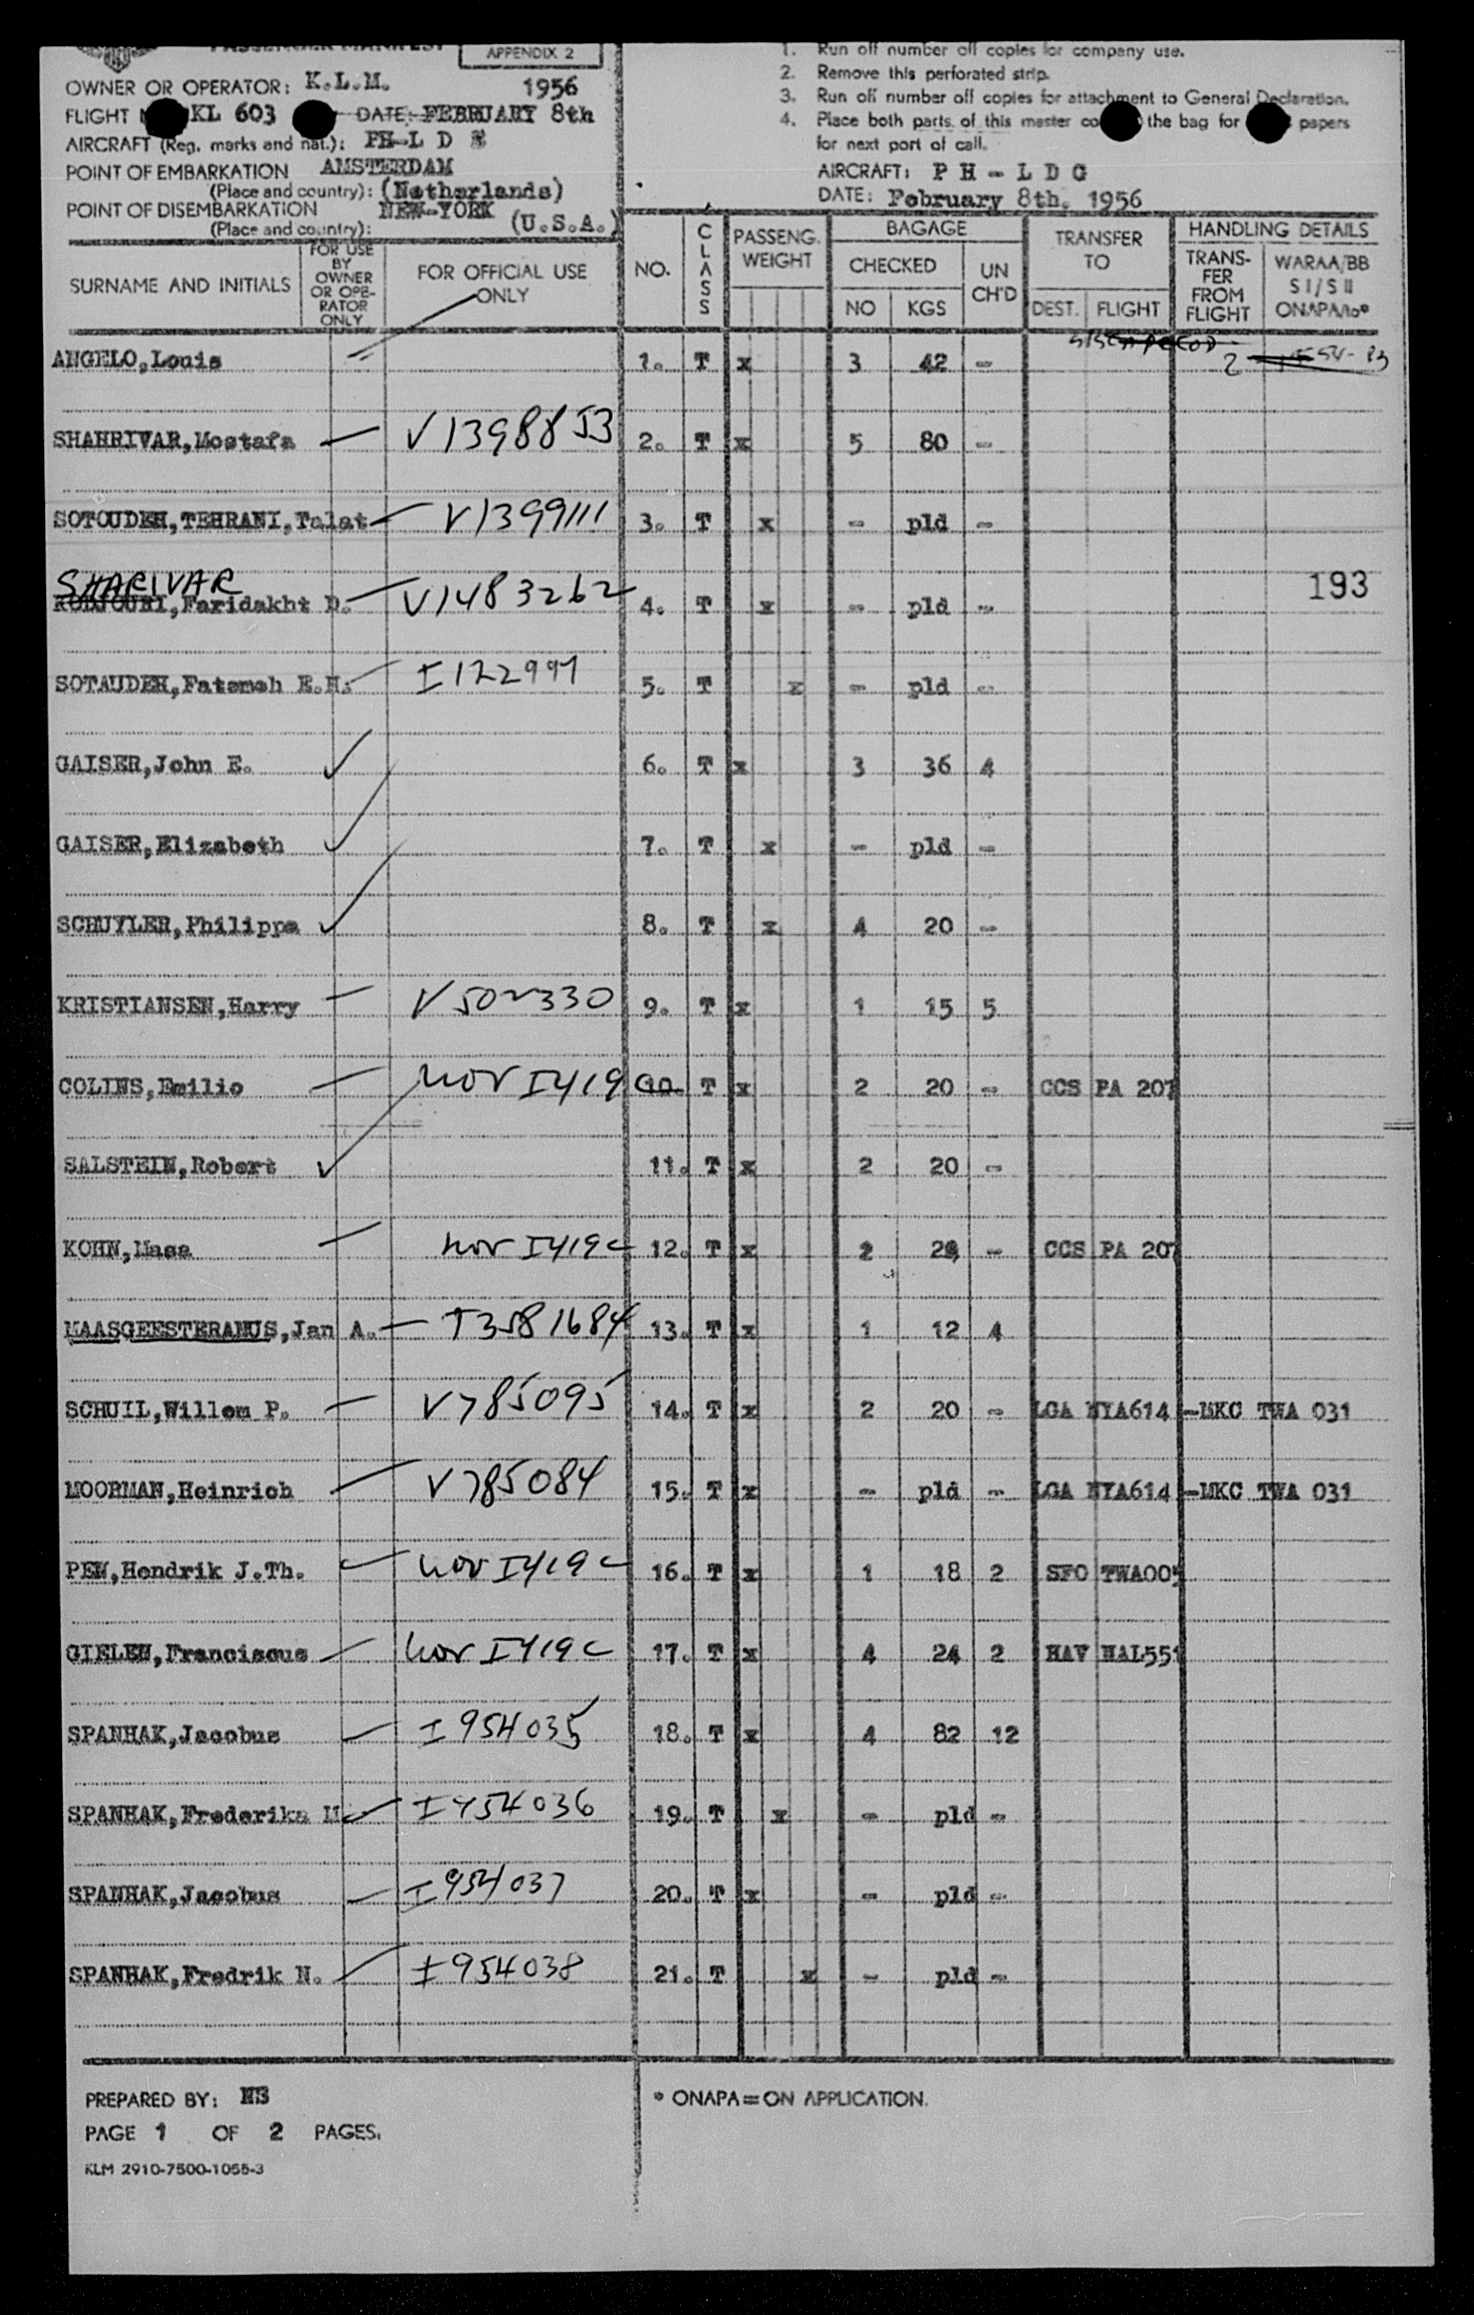 PASSENGER MANIFEST
APPENDIX 2
OWNER OR OPERATOR: K.L.M. 1956
FLIGHT KL 603 DATE: FEBRUARY 8th
AIRCRAFT (Reg. marks and nat.): PH-L D
POINT OF EMBARKATION AMSTERDAM
(Place and country): (Netherlands)
POINT OF DISEMBARKATION NEW-YORK
(Place and country): (U.S.A.)
1. Run off number off copies for company use.
2. Remove this perforated strip.
3. Run off number off copies for attachment to General Declaration.
4. Place both parts of this master co the bag for papers
for next port of call.
AIRCRAFT: P H - L D G
DATE: February 8th, 1956
SURNAME AND INITIALS
FOR USE
BY
OWNER
OR OPE-
RATOR
ONLY
FOR OFFICIAL USE
ONLY
NO.
CLASS
PASSENG.
WEIGHT
BAGAGE
CHECKED
NO KGS
UN
CH'D
TRANSFER
TO
DEST. FLIGHT
HANDLING DETAILS
TRANS-
FER
FROM
FLIGHT
WARAA/BB
S I / S II
ONAPA/to*
ANGELO,Louis 1. T x 3 42 - 2
SHAHRIVAR,Mostafa V1398853 2. T x 5 80 -
SOTOUDEH,TEHRANI,Talat V1399111 3. T x - pld -
SHARIVAR
193
Faridakht D. V1483262 4. T x - pld -
SOTAUDEH,Fatemeh E.H. I122997 5. T x - pld -
GAISER,John E. 6. T x 3 36 4
GAISER,Elizabeth 7. T x - pld -
SCHUYLER,Philippa 8. T x 4 20 -
KRISTIANSEN,Harry V502330 9. T x 1 15 5
COLINS,Emilio nov I419c 10. T x 2 20 - CCS PA 207
SALSTEIN,Robert 11. T x 2 20 -
KOHN,Masa nov I419c 12. T x 2 - CCS PA 207
MAASGEESTERANUS,Jan A. I3581684 13. T x 1 12 4
SCHUIL,Willem P. V785095 14. T x 2 20 - LGA NYA614 -MKC TWA 031
MOORMAN,Heinrich V785084 15. T x - pld - LGA NYA614 -MKC TWA 031
PEN,Hendrik J.Th. nov I419c 16. T x 1 18 2 SFO TWA005
GIELEN,Franciscus nov I419c 17. T x 4 24 2 HAV NAL551
SPANHAK,Jacobus I954035 18. T x 4 82 12
SPANHAK,Frederika M I954036 19. T x - pld -
SPANHAK,Jacobus I954037 20. T x - pld -
SPANHAK,Fredrik N. I954038 21. T x - pld -
PREPARED BY: NB
* ONAPA=ON APPLICATION.
PAGE 1 OF 2 PAGES.
KLM 2910-7500-1055-3